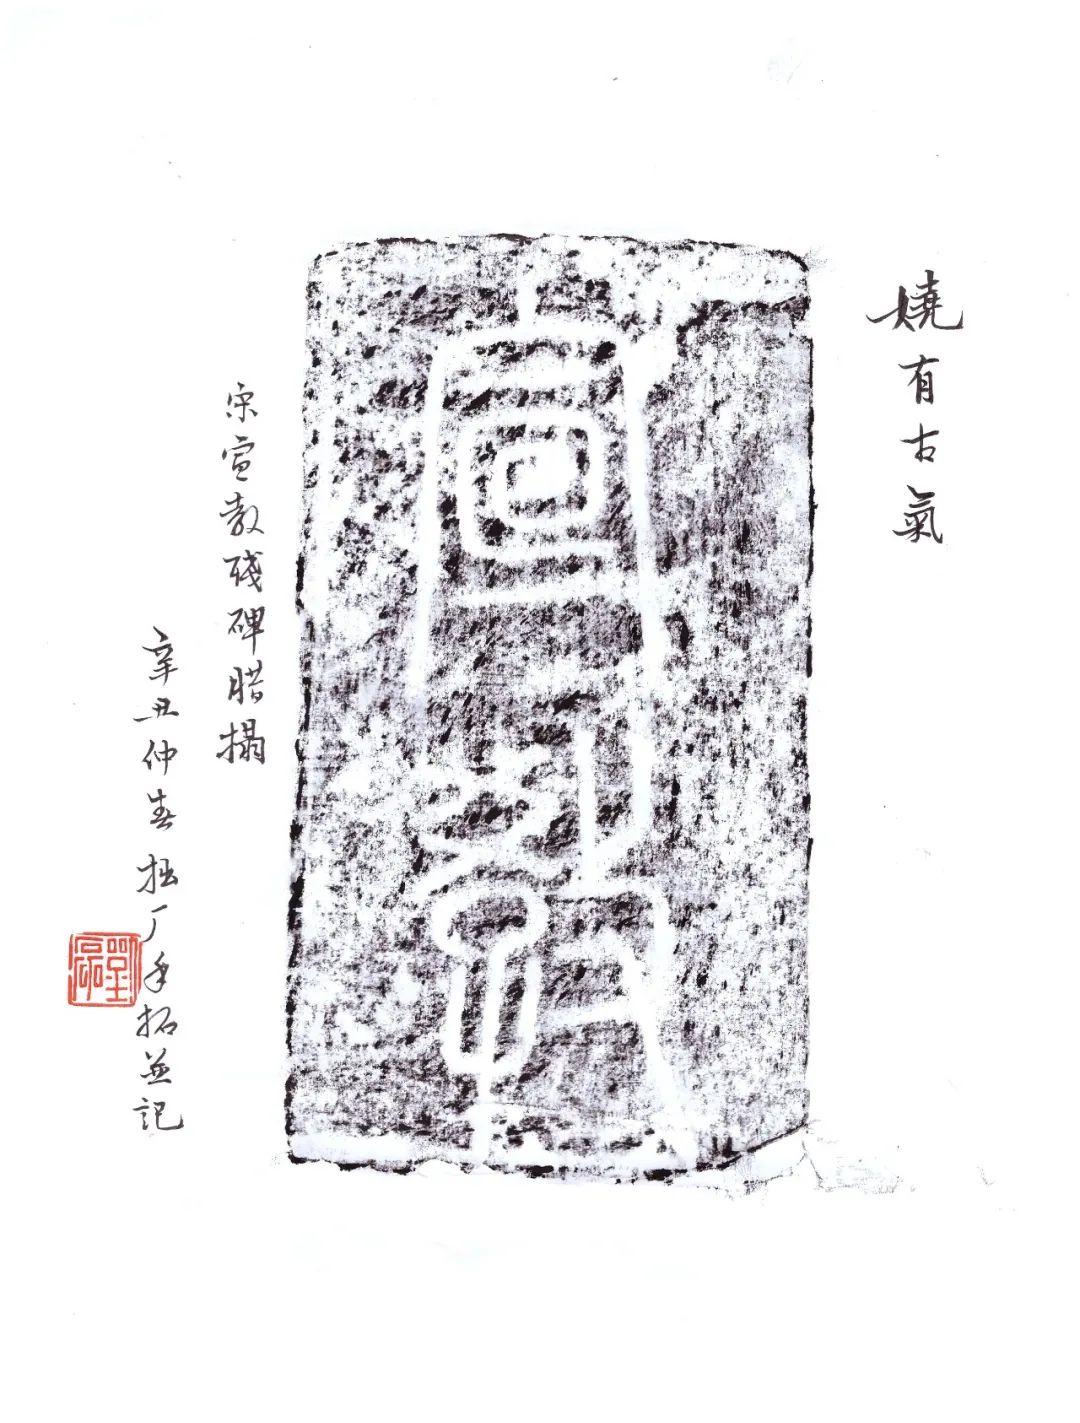 嬈有古氣
宣教
宋宣教殘碑腊搨
辛丑仲春拙厂手拓並記